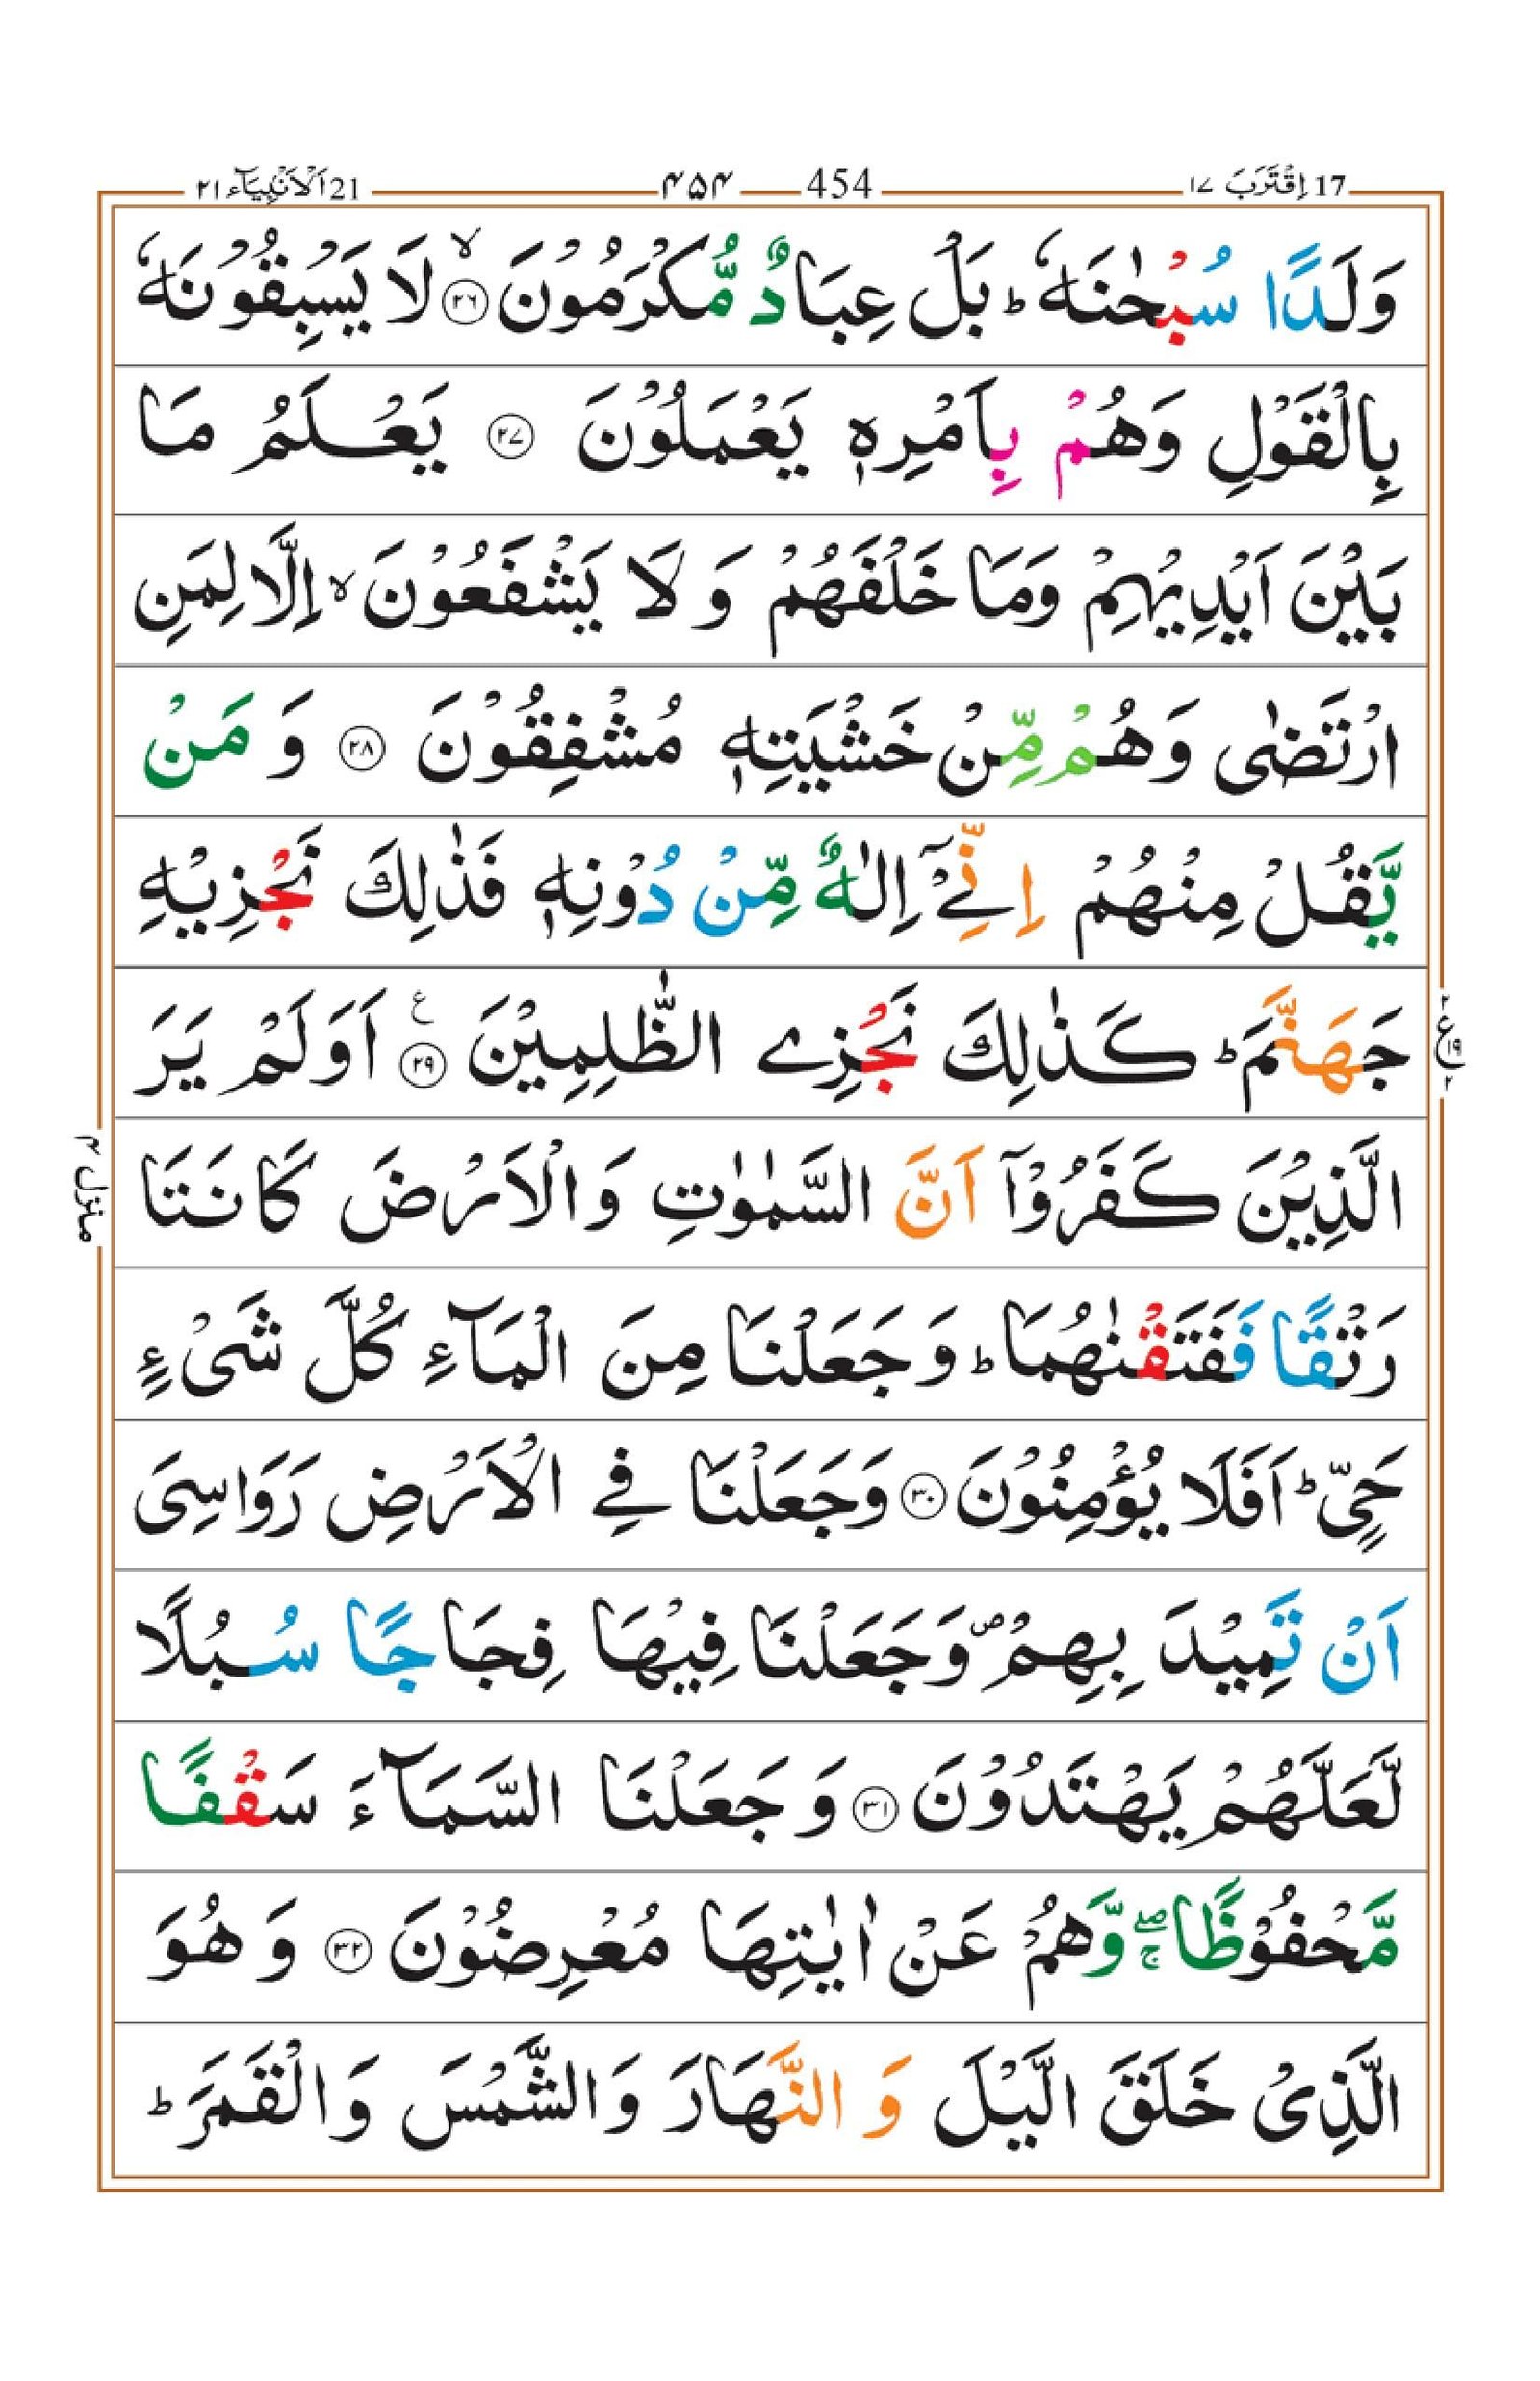 17 اِقْتَرَبَ ١٧ 454 ۴۵۴ 21 اَلْاَنْۢبِيَآء ٢١
وَلَدًا سُبْحٰنَهٗ ؕ بَلْ عِبَادٌ مُّكْرَمُوْنَ ۙ ﴿٢٦﴾ لَا يَسْبِقُوْنَهٗ
بِالْقَوْلِ وَهُمْ بِاَمْرِهٖ يَعْمَلُوْنَ ﴿٢٧﴾ يَعْلَمُ مَا
بَيْنَ اَيْدِيْهِمْ وَمَا خَلْفَهُمْ وَ لَا يَشْفَعُوْنَ ۙ اِلَّا لِمَنِ
ارْتَضٰى وَهُمْ مِّنْ خَشْيَتِهٖ مُشْفِقُوْنَ ﴿٢٨﴾ وَ مَنْ
يَّقُلْ مِنْهُمْ اِنِّيْۤ اِلٰهٌ مِّنْ دُوْنِهٖ فَذٰلِكَ نَجْزِيْهِ
جَهَنَّمَ ؕ كَذٰلِكَ نَجْزِي الظّٰلِمِيْنَ ﴿٢٩﴾ ع اَوَلَمْ يَرَ
٢ ع ١٩ ٢
الَّذِيْنَ كَفَرُوْۤا اَنَّ السَّمٰوٰتِ وَالْاَرْضَ كَانَتَا
منزل ۴
رَتْقًا فَفَتَقْنٰهُمَا ؕ وَجَعَلْنَا مِنَ الْمَآءِ كُلَّ شَىْءٍ
حَىٍّ ؕ اَفَلَا يُؤْمِنُوْنَ ﴿٣٠﴾ وَجَعَلْنَا فِي الْاَرْضِ رَوَاسِىَ
اَنْ تَمِيْدَ بِهِمْ ۪ وَجَعَلْنَا فِيْهَا فِجَاجًا سُبُلًا
لَّعَلَّهُمْ يَهْتَدُوْنَ ﴿٣١﴾ وَ جَعَلْنَا السَّمَآءَ سَقْفًا
مَّحْفُوْظًا ۖۚ وَّهُمْ عَنْ اٰيٰتِهَا مُعْرِضُوْنَ ﴿٣٢﴾ وَ هُوَ
الَّذِىْ خَلَقَ الَّيْلَ وَ النَّهَارَ وَالشَّمْسَ وَالْقَمَرَ ؕ